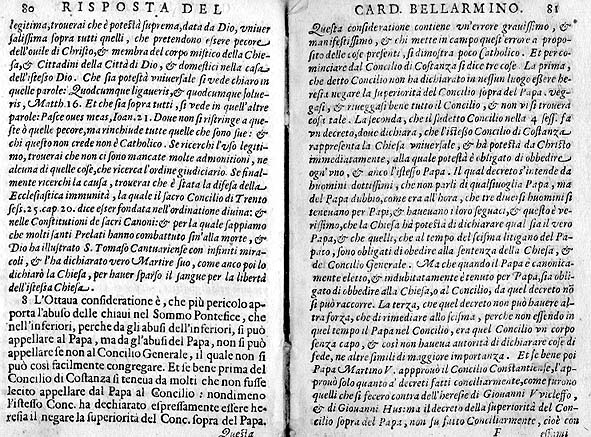 80 RISPOSTA DEL
legitima, trouerai che è potestà suprema, data da Dio, vniuer
salissima sopra tutti quelli, che pretendono essere pecore
dell'ouile di Christo, & membra del corpo mistico della Chie-
sa, & Cittadini della Città di Dio, & domestici nella casa
dell'istesso Dio. Che sia potestà vniuersale si vede chiaro in
quelle parole: Quodcumque ligaueris, & quodcumque solue-
ris, Matth.16. Et che sia sopra tutti, si vede in quell'altre
parole: Pasce oues meas, Ioan.21. Doue non si ristringe a que-
ste ò quelle pecore, ma rinchiude tutte quelle che sono sue: &
chi questo non crede non è Catholico. Se ricerchi l'vso legiti-
mo, trouerai che non ci sono mancate molte admonitioni, ne
alcuna di quelle cose, che ricerca l'ordine giudiciario. Se final-
mente ricerchi la causa, trouerai che è stata la difesa della
Ecclesiastica immunità, la quale il sacro Concilio di Trento
sess.25.cap.20. dice esser fondata nell'ordinatione diuina: &
nelle Constitutioni de sacri Canoni: & per la quale sappiamo
che molti santi Prelati hanno combattuto sin'alla morte, &
Dio ha illustrato S. Tomaso Cantuariense con infiniti mira-
coli, & l'ha dichiarato vero Martire suo, come anco poi lo
dichiarò la Chiesa, per hauer sparso il sangue per la libertà
dell'istessa Chiesa.
8 L'Ottaua consideratione è, che più pericolo ap-
porta l'abuso delle chiaui nel Sommo Pontefice, che
nell'inferiori, perche da gli abusi dell'inferiori, si può
appellare al Papa, ma da gl'abusi del Papa, non si può
appellare se non al Concilio Generale, il quale non si
può così facilmente congregare. Et se bene prima del
Concilio di Costanza si teneua da molti che non fusse
lecito appellare dal Papa al Concilio: nondimeno
l'istesso Conc. ha dechiarato espressamente essere he-
resia il negare la superiorità del Conc. sopra del Papa.
Questa
CARD. BELLARMINO. 81
Questa consideratione contiene vn'errore grauissimo, &
manifestissimo, & chi mette in campo quest'errore a propo-
sito delle cose presenti, si dimostra poco Catholico. Et per co-
minciare dal Concilio di Costanza si dice tre cose. La prima,
che detto Concilio non ha dichiarato in nessun luogo essere he-
resia negare la superiorità del Concilio sopra del Papa. veg-
gasi, & riueggasi bene tutto il Concilio, & non vi si trouerà
cosa tale. La seconda, che il sedetto Concilio nella 4 sess. fa
vn decreto, doue dichiara, che l'istesso Concilio di Costanza
rappresenta la Chiesa vniuersale, & ha potestà da Christo
immediatamente, alla quale potestà è obligato di obbedire
ogn'vno, & anco l'istesso Papa. Il qual decreto s'intende da
huomini dottissimi, che non parli di qualsiuoglia Papa, ma
del Papa dubbio, come era all'hora, che tre diuersi huomini si
teneuano per Papi, & haueuano i loro seguaci, & questo è ve-
rissimo, che la Chiesa hà potestà di dichiarare qual sia il vero
Papa, & che quelli, che al tempo del scisma litigano del Pa-
pato, sono obligati di obedire alla sentenza della Chiesa, &
del Concilio Generale. Ma che quando il Papa è canonica-
mente eletto, & indubitatamente è tenuto per Papa, sia obliga-
to di obbedire alla Chiesa, o al Concilio, da quel decreto nõ
si può raccorre. La terza, che quel decreto non può hauere al-
tra forza, che di rimediare allo scisma, perche non essendo in
quel tempo il Papa nel Concilio, era quel Concilio vn corpo
senza capo, & così non haueua autorità di dichiarare cose di
fede, ne altre simili di maggiore importanza. Et se bene poi
Papa Martino V. approuò il Concilio Constantiense, l'ap-
prouò solo quanto a' decreti fatti conciliarmente, come furono
quelli che si fecero contro dell'heresie di Giouanni Vvicleffo,
& di Giouanni Hus: ma il decreto della superiorità del Con-
cilio sopra del Papa, non fu fatto Conciliarmente, cioè con
F essami